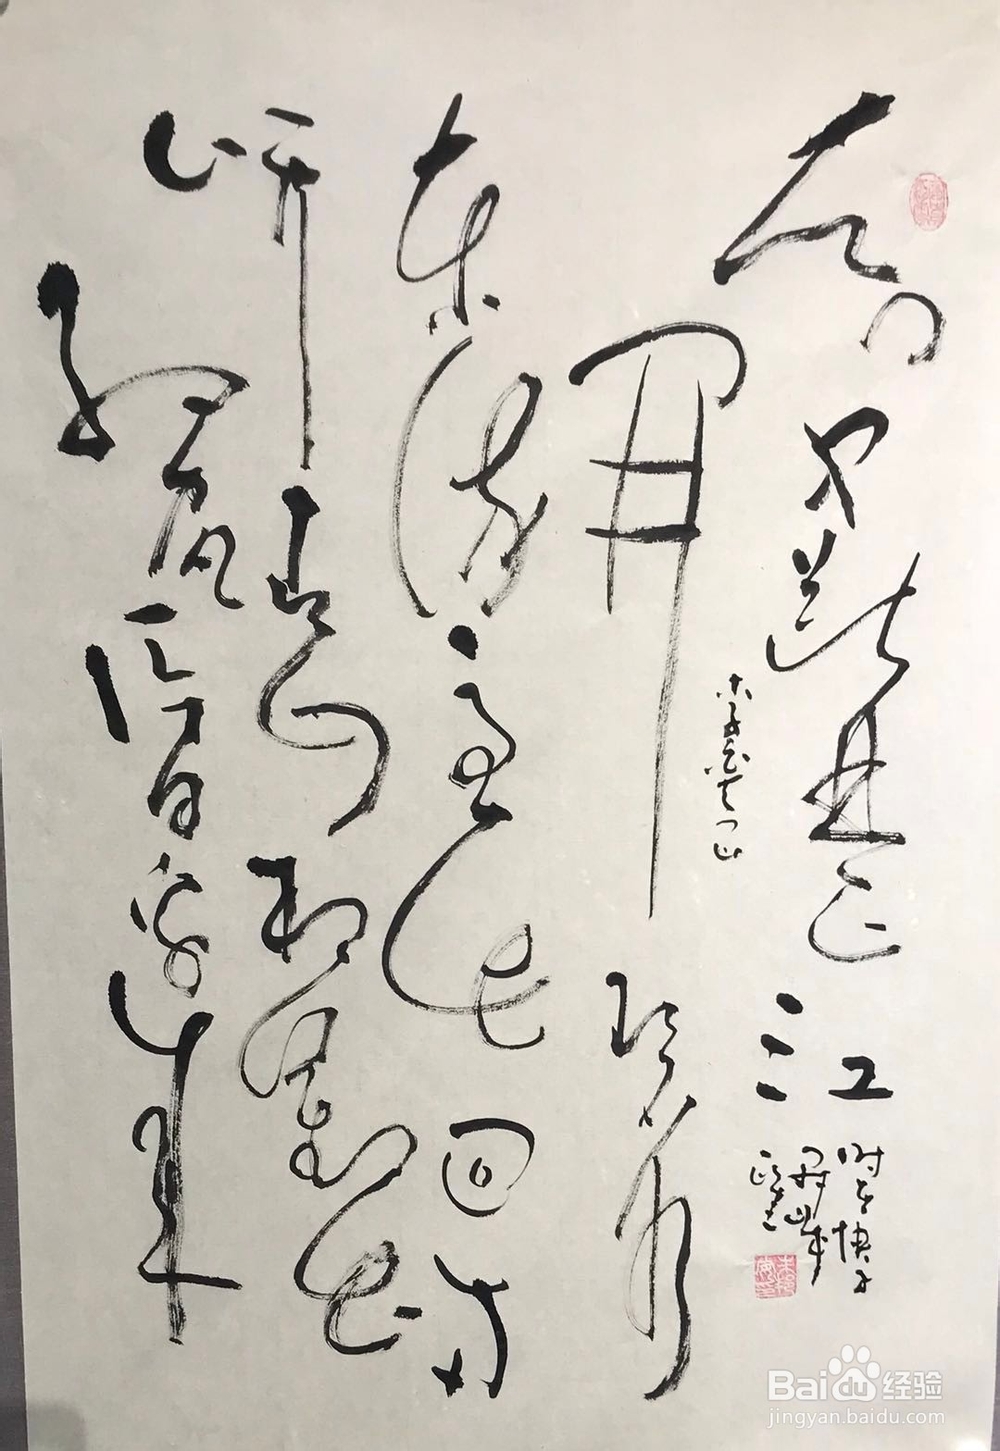 天门中断楚江
開碧水
东流至此回两
岸青山相对出
孤帆一片日边来
天门山
Baidu经验
jingyan.baidu.com